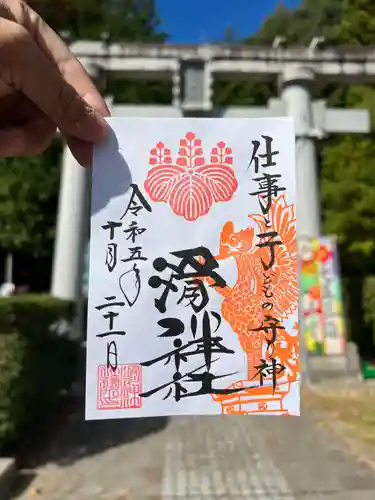 仕事と子どもの守り神
滑川神社
令和五年
十月二十一日